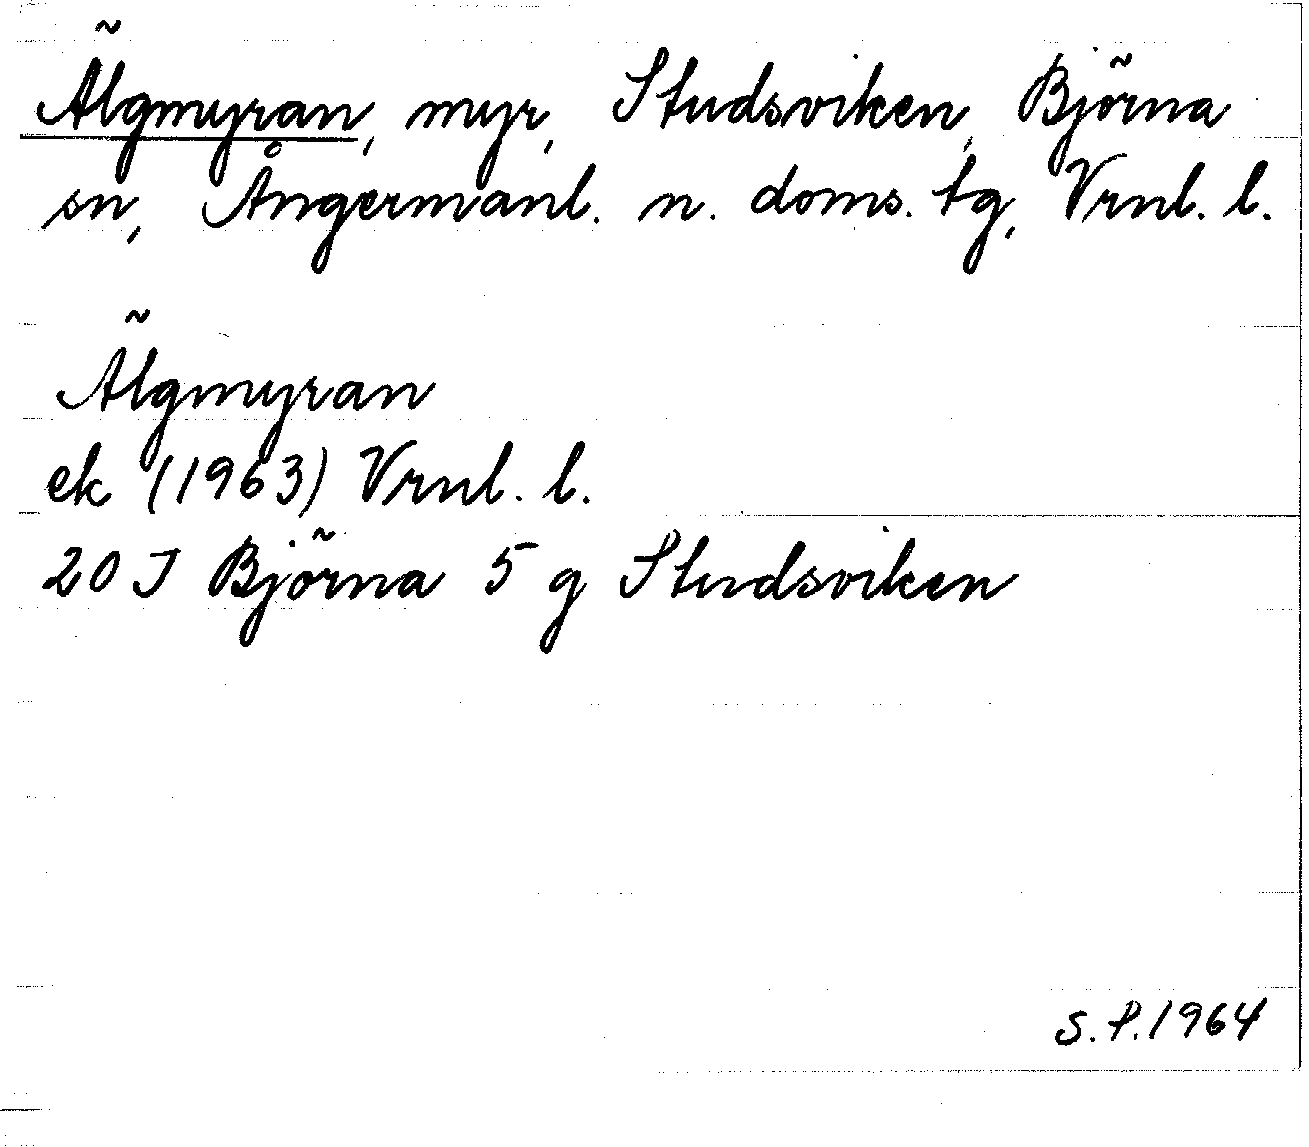 Älgmyran, myr, Studsviken, Björna
sn, Ångermanl. n. doms. tg, Vrnl. l.
Älgmyran
ek (1963) Vrnl. l.
20 J Björna 5 g Studsviken
S.P.1964